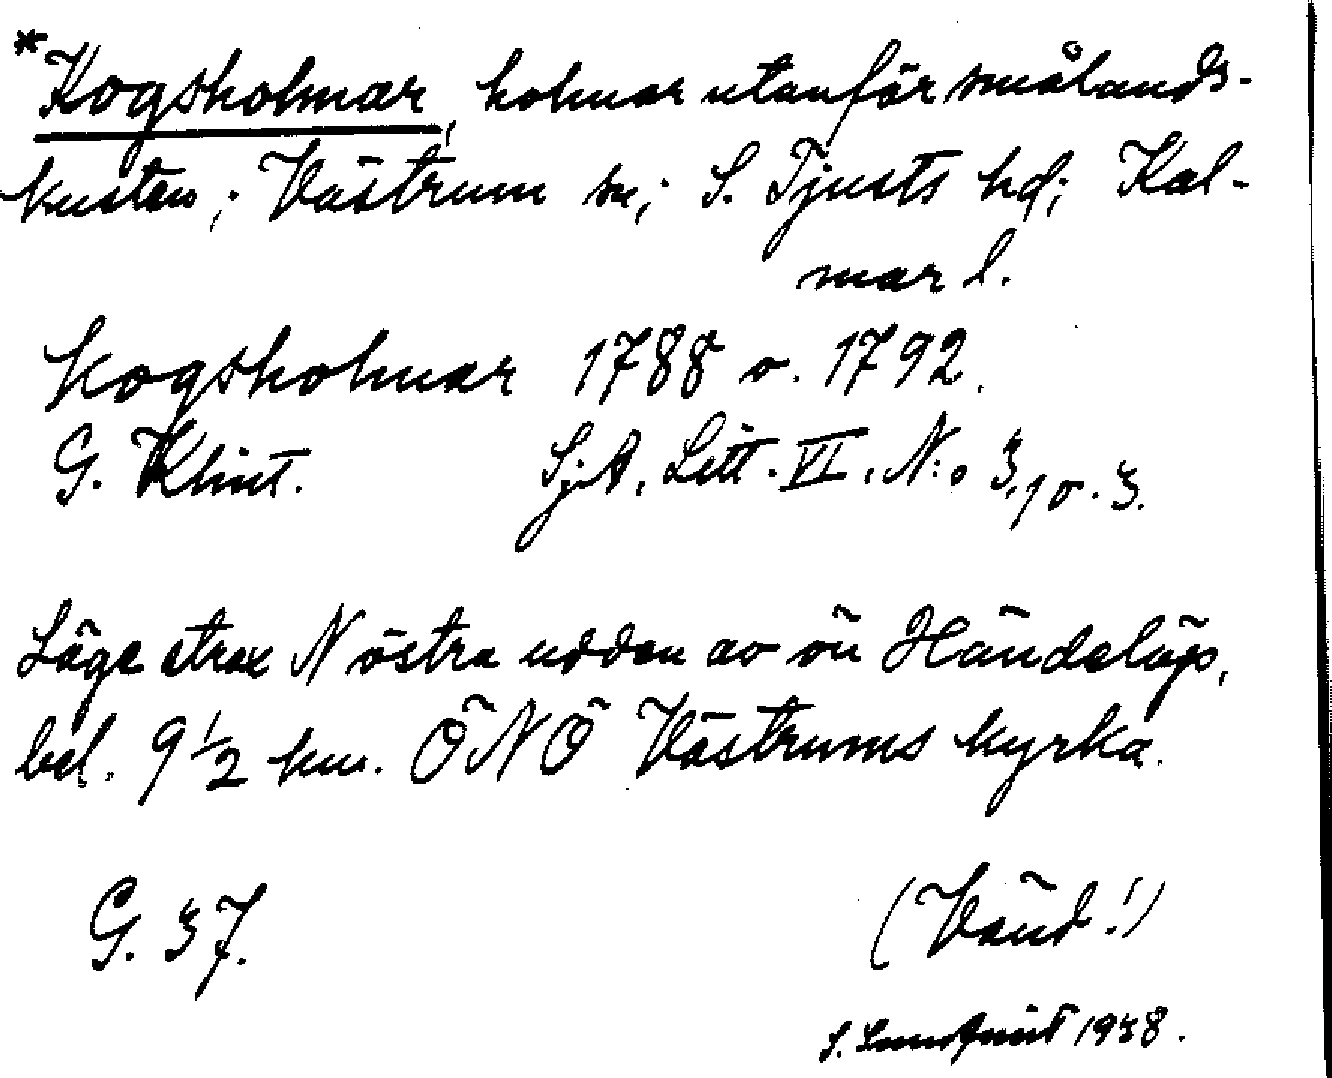 *Kogsholmar, holmar utanför smålands-
kusten; Västrum sn; S. Tjusts hd; Kal-
mar l.
Kogsholmar 1788 o. 1792.
G. Klint. SjA, Litt. VI, N:o 3,1 o. 3.
Läge strax N östra udden av ön Händelöp,
bel. 9 1/2 km. ÖNÖ Västrums kyrka.
G. 37. (Vänd!)
S. 1938.